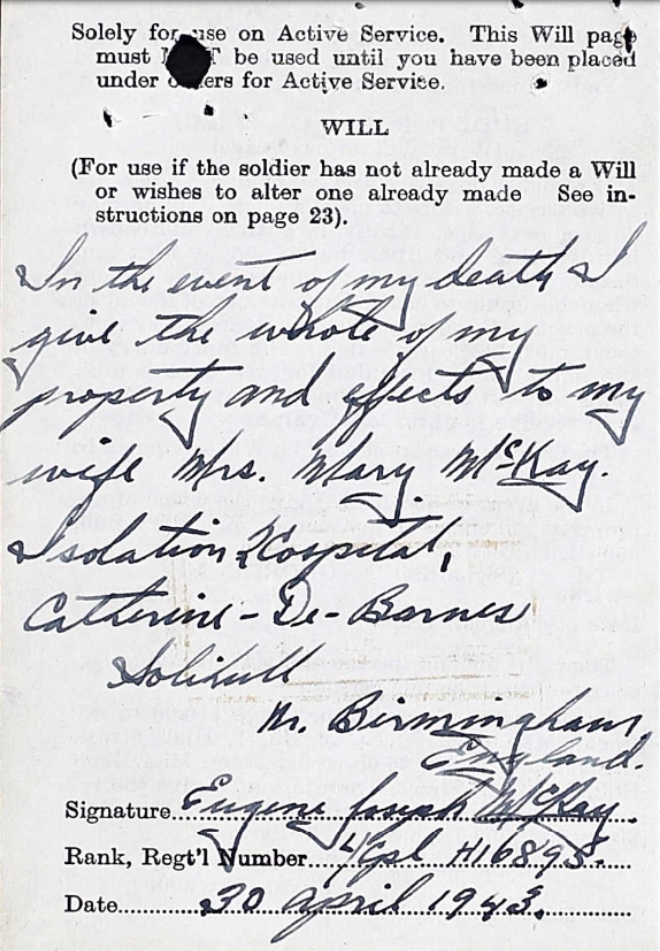 Solely for use on Active Service. This Will page
must NOT be used until you have been placed
under orders for Active Service.
WILL
(For use if the soldier has not already made a Will
or wishes to alter one already made See in-
structions on page 23).
In the event of my death I
give the whole of my
property and effects to my
wife Mrs. Mary McKay.
Isolation Hospital,
Catherine-De-Barnes
Solihull
Nr. Birmingham,
England.
Signature Eugene Joseph McKay.
Rank, Regt'l Number L/Cpl H16895.
Date 30 April 1943.